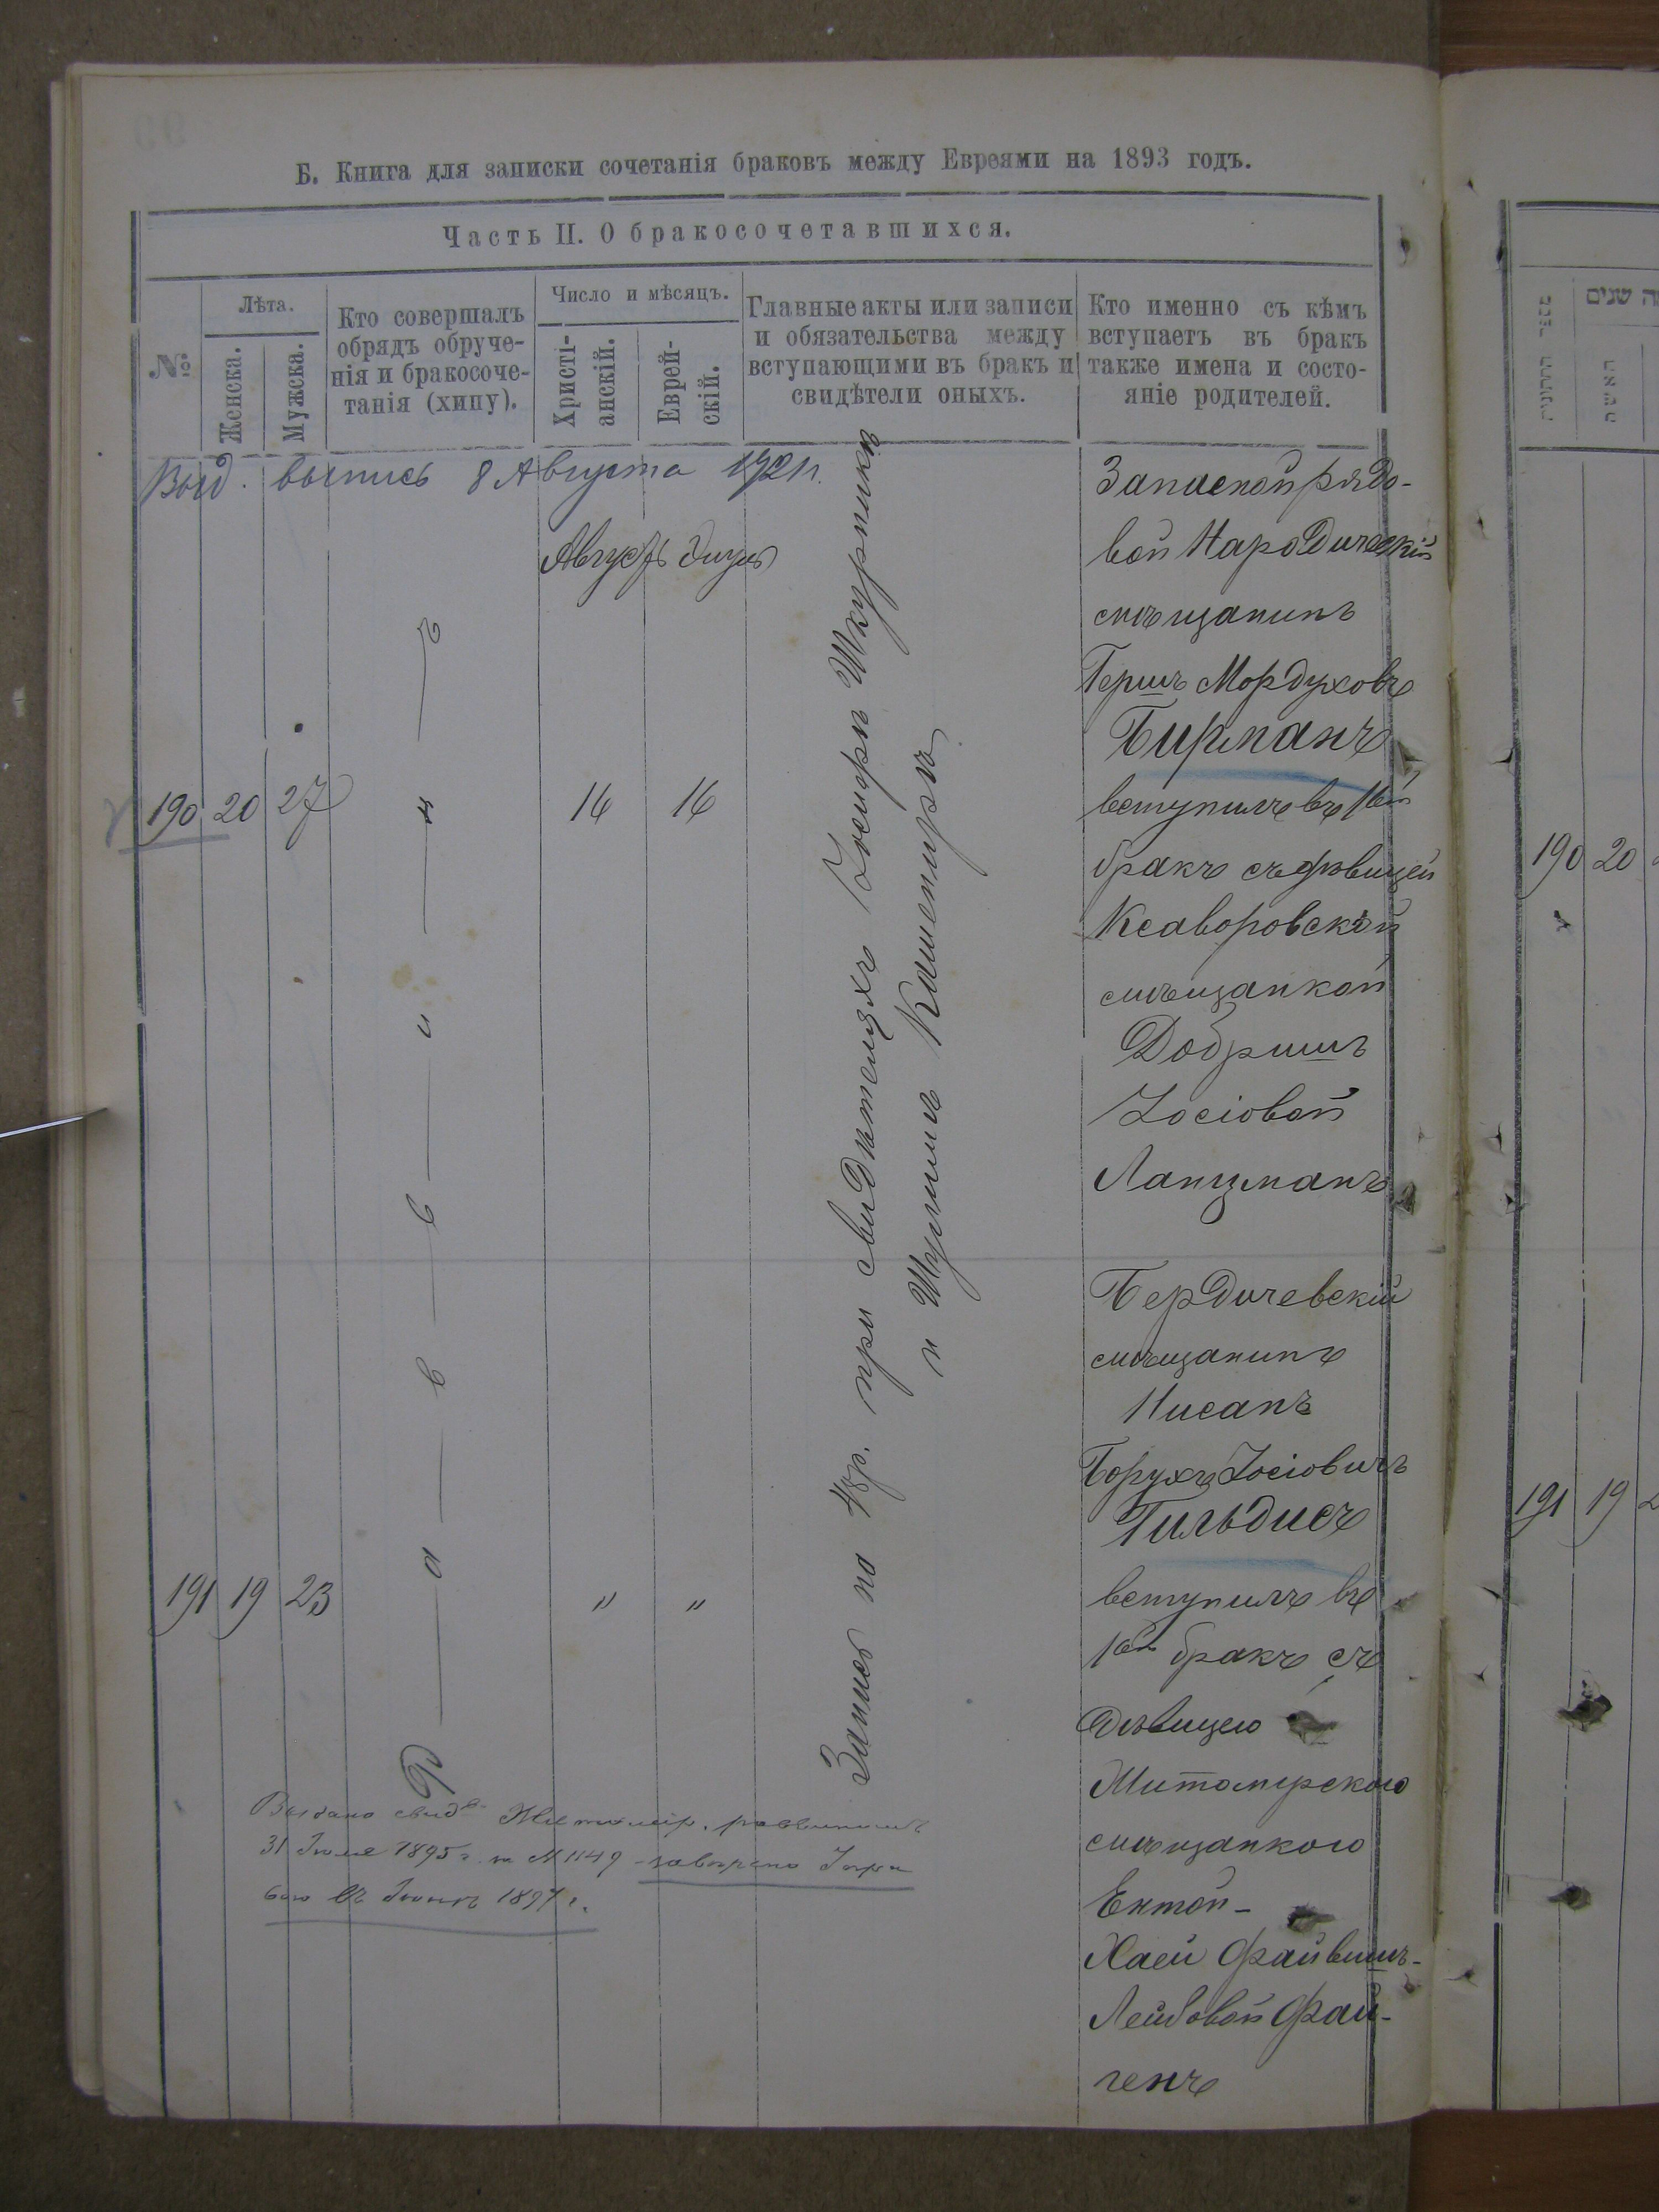 Б. Книга для записки сочетанія браковъ между Евреями на 1893 годъ.
Часть II. О бракосочетавшихся.
№
Лѣта.
Женска.
Мужска.
Кто совершалъ
обрядъ обруче-
нія и бракосоче-
танія (хипу).
Число и мѣсяцъ.
Христі-
анскій.
Еврей-
скій.
Главные акты или записи
и обязательства между
вступающими въ бракъ и
свидѣтели оныхъ.
Кто именно съ кѣмъ
вступаетъ въ бракъ
также имена и состо-
яніе родителей.
Выд. выпись 8 Августа
Августъ Элулъ
190 20 27
16 16
Раввинъ
Запись по 48р. при свидѣтеляхъ Іосифѣ Шкурникѣ
и Шулимѣ Каменирѣ
Запасной рядо-
вой Народичскій
мѣщанинъ
Гершъ Мордуховъ
Бирманъ
вступилъ въ 1ый
бракъ съ дѣвицей
Ксаворовской
мѣщанкой
Добришъ
Іосіовой
Ланцманъ
191 19 23
" "
Бердичевскій
мѣщанинъ
Нисанъ
Борухъ Іосіовичъ
Гильдисъ
вступилъ въ
1ый бракъ съ
дѣвицею
Житомирскою
мѣщанкою
Ентой-
Хаей Файвишъ-
Лейбовой Фай-
генъ
Выдано свид Житомир. раввиномъ
31 Іюля 1895 г. за № 1149
въ 1897 г.
שנים
190 20
191 19